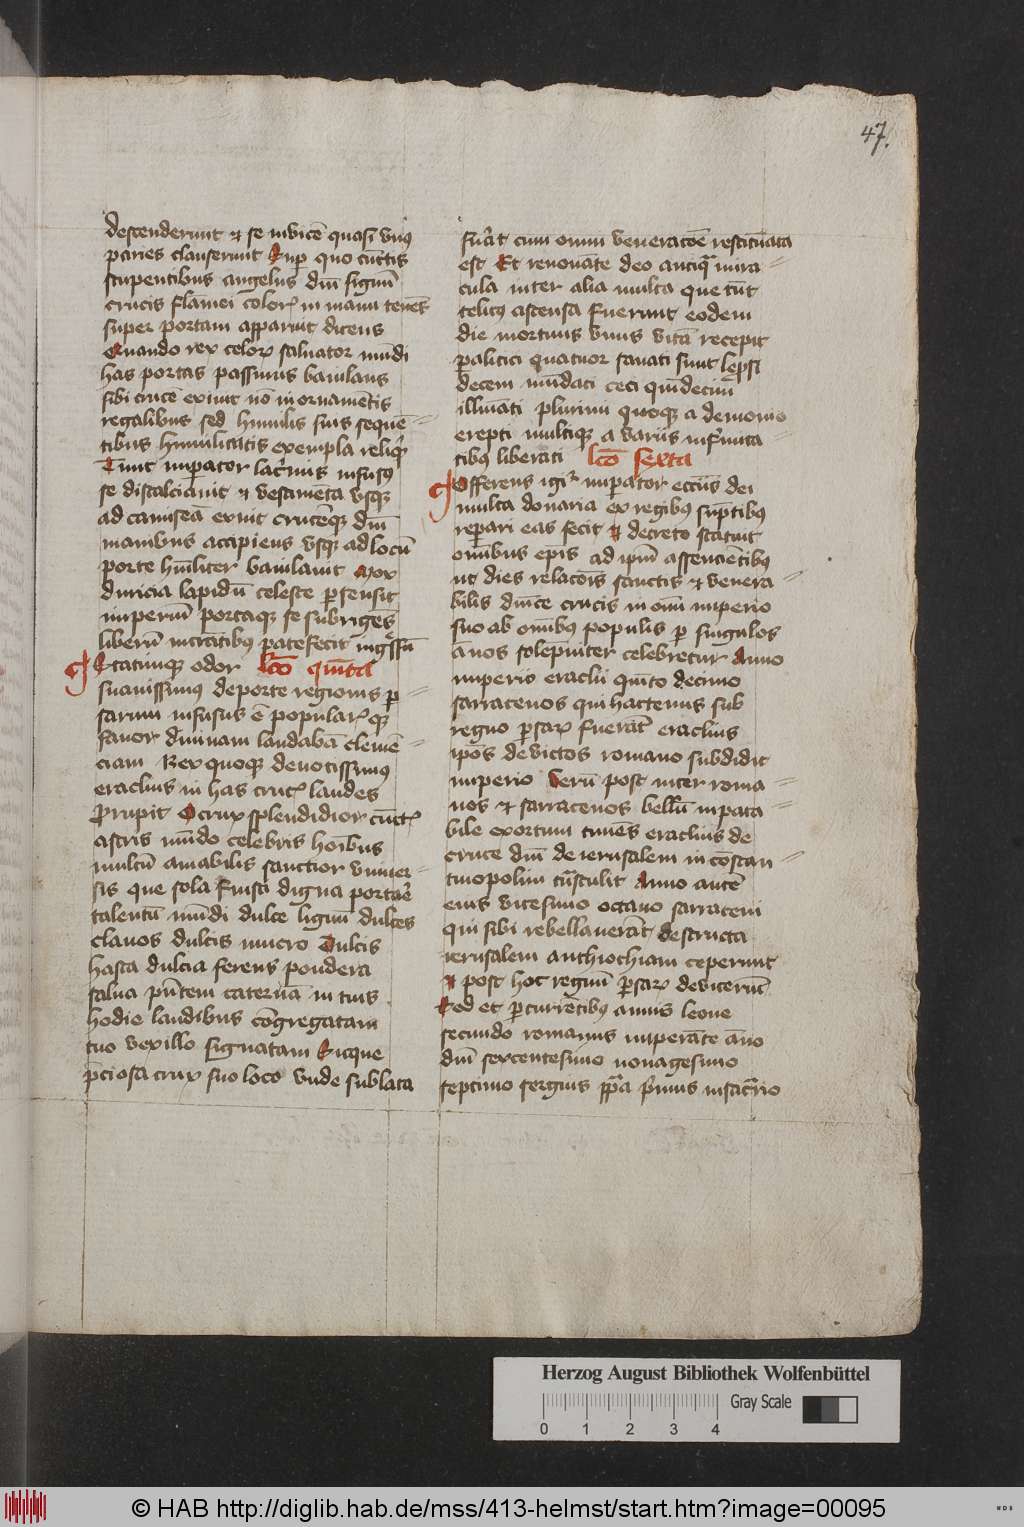 47.
descenderunt et se invicē quasi vnꝰ
paries clauserunt Sup quo cūctis
stupentibus angelus dn̄i signū
crucis flamei color in manu tenēs
super portam apparuit dicens
Quando rex celoꝝ saluator mūdi
has portas passurus baiulans
sibi crucē exiuit nō in ornamētis
regalibus sed humilis suis sequē-
tibus humilitatis exempla reliqͥt
Tunc imperator lacͥmis infusꝰ
se discalciauit et vestimēta vsqꝫ
ad camiseā exuit crucēqꝫ dn̄i
manibus accipiens vsqꝫ ad locū
porte hūiliter baiulauit Mox
duricia lapidū celeste persensit
imperiū portaqꝫ se subrigēs
liberū intrātibus patefecit ingssū
Statimqꝫ odor lc̄o quīta
suauissimus de porte regionis per-
sarum infusus ē popularꝫ qꝫ
fauor diuinam laudabā clemē-
ciam Rex quoqꝫ deuotissimus
eraclius in has crucꝭ laudes
prorupit O crux splendidior cūctꝭ
astris mūdo celebris hoīibus
multū amabilis sanctior vniuer-
sis que sola fuisti digna portare
talentū mūdi dulce lignū dulces
clauos dulcis mucro Dulcis
hasta dulcia ferens pondera
salua pn̄tem cateruā in tuis
hodie laudibus cōgregatam
tuo vexillo signatam Sicque
pciosa crux suo loco vnde sublata
fuāt cum omni veneracōe restituata
est Et renouāte deo antiqͣ mira-
cula inter alia multa que tūc
celitꝰ ostensa fuerunt eodem
die mortuus vnus vitā recepit
palitici quatuor sanati sunt lepsi
decem mūdati ceci quīdecim
illuīati plurimi quoqꝫ a demonio
erepti multiqꝫ a variis infirmita-
tibꝰ liberati lc̄o sexta
Offerens igiͬ imperator ecciis dei
multa donaria ex regibꝰ sūptibꝰ
repari eas fecit et decreto statuit
om̄ibus ep̄is ad ipm̄ assencientibꝰ
ut dies relacōis sanctis et venera-
bilis dn̄ice crucis in om̄i imperio
suo ab om̄ibꝰ populis p singulos
ānos solēpniter celebretur Anno
imperii eraclii quīto decimo
sarracenos qui hactenus sub
regno psaꝝ fuerāt eraclius
ipōs devictos romano subdidit
imperio Verū post inter roma-
nos et sarracenos bellū inpata-
bile exortum timēs eraclius de
cruce dn̄i de ierusalem in cōstan-
tinopolim tͣnstulit Anno autē
eius vicesimo octauo sarraceni
qui sibi rebellauerāt destructa
ierusalem anthiochiam ceperunt
et post hoc regnū psaꝝ devicerūt
Sed et pcurrētibꝰ annis leone
secundo romanis imperāte āno
dn̄i sexcentesimo nonagesimo
septimo sergius ppa pͥmus in sacͣrio
Herzog August Bibliothek Wolfenbüttel
Gray Scale
0 1 2 3 4
© HAB http://diglib.hab.de/mss/413-helmst/start.htm?image=00095
WDB